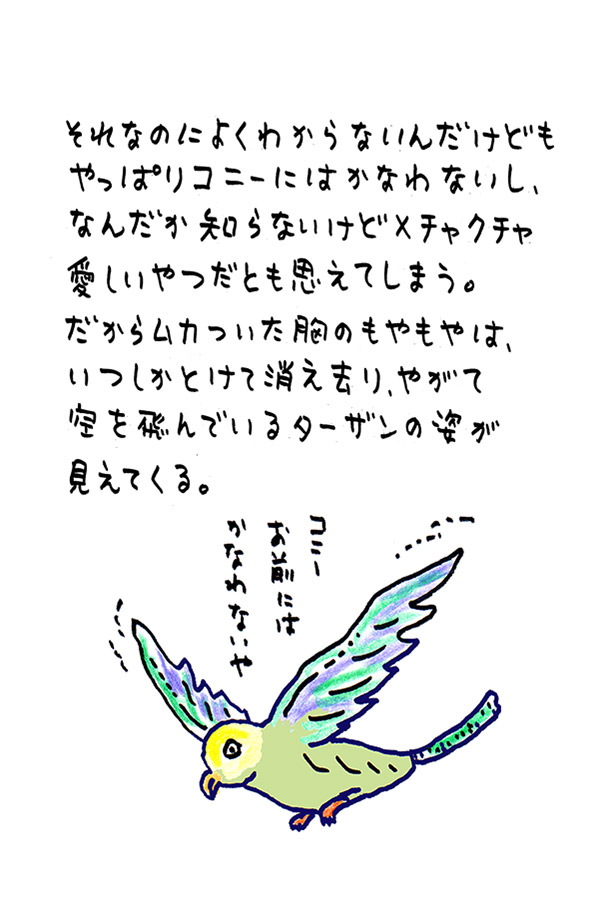 それなのによくわからないんだけども
やっぱりコニーにはかなわないし、
なんだか知らないけどメチャクチャ
愛しいやつだとも思えてしまう。
だからムカついた胸のもやもやは、
いつしかとけて消え去り、やがて
空を飛んでいるターザンの姿が
見えてくる。
コニー
お前には
かなわないや